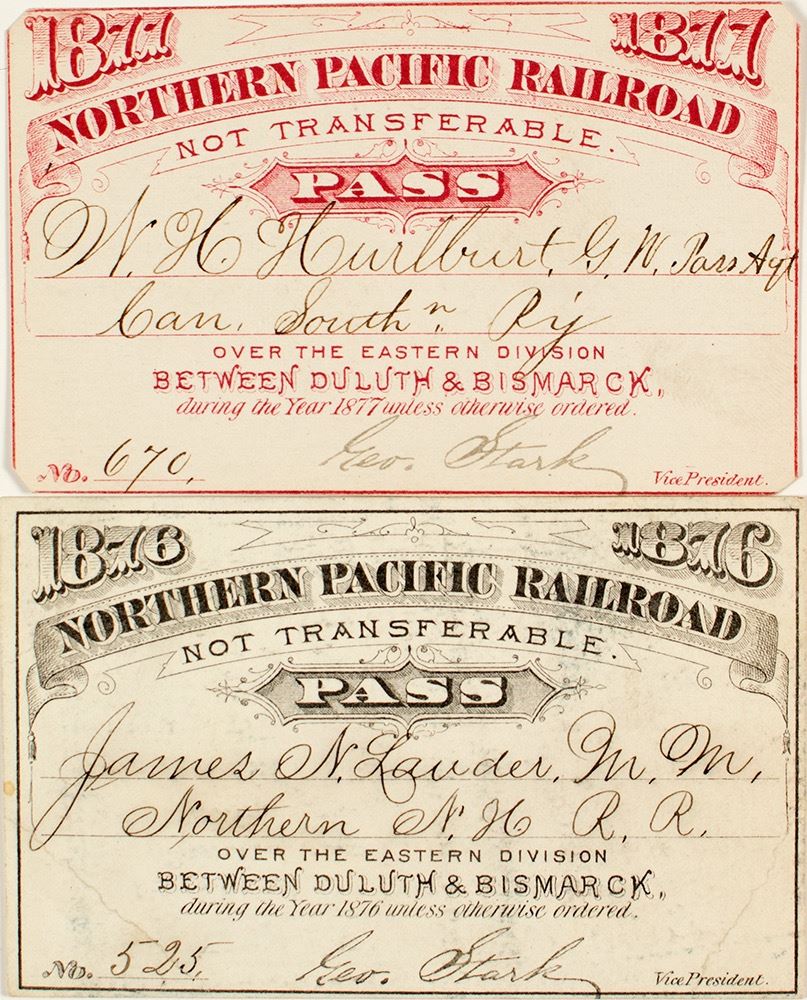 1877 1877
NORTHERN PACIFIC RAILROAD
NOT TRANSFERABLE.
PASS
W. H. Hurlburt, G. W. Pass Agt
Can. South n. Ry
OVER THE EASTERN DIVISION
BETWEEN DULUTH & BISMARCK,
during the Year 1877 unless otherwise ordered.
No. 670. Geo. Stark Vice President.
1876 1876
NORTHERN PACIFIC RAILROAD
NOT TRANSFERABLE.
PASS
James N. Lauder, M. M,
Northern N. H R. R.
OVER THE EASTERN DIVISION
BETWEEN DULUTH & BISMARCK,
during the Year 1876 unless otherwise ordered.
No. 525. Geo. Stark Vice President.